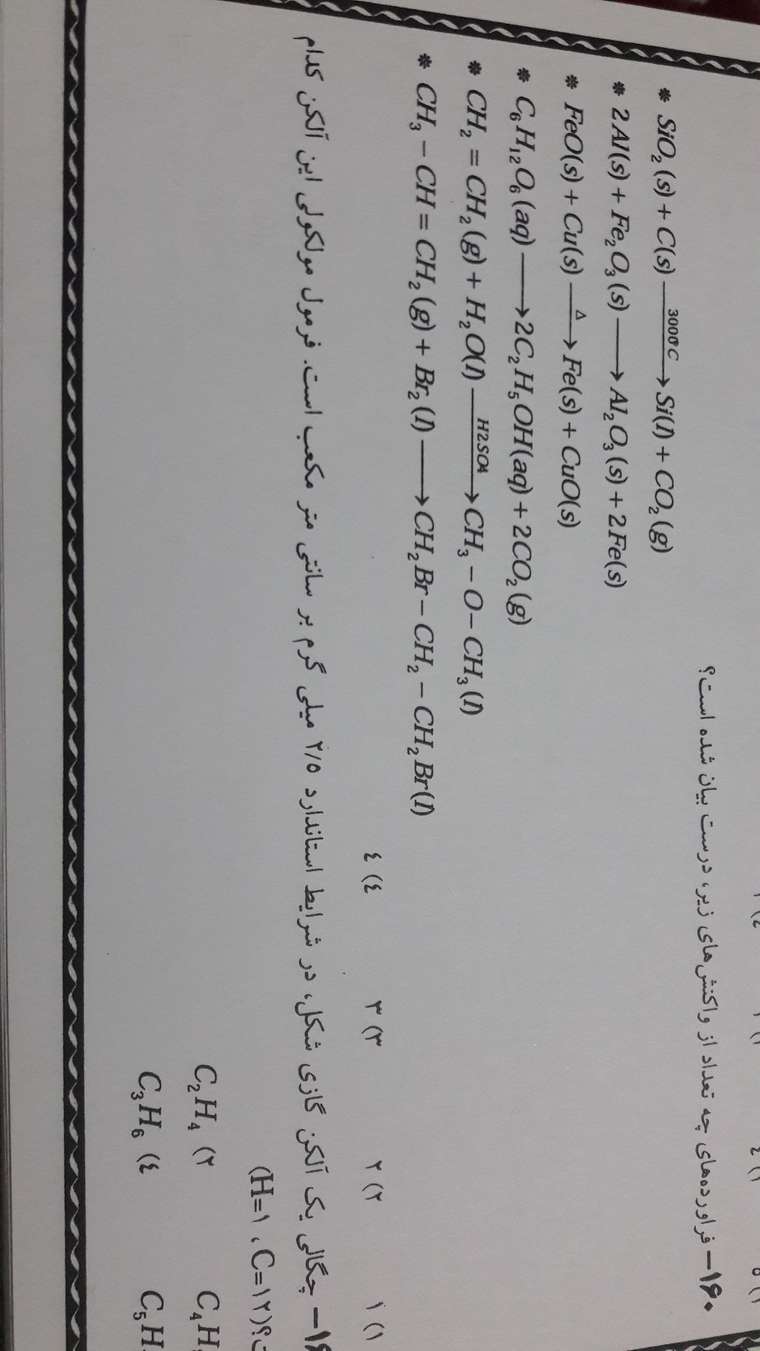 ۱۶۰- فراورده‌های چه تعداد از واکنش‌های زیر، درست بیان شده است؟
* SiO₂(s) + C(s) —3000°C→ Si(l) + CO₂(g)
* 2Al(s) + Fe₂O₃(s) ⟶ Al₂O₃(s) + 2Fe(s)
* FeO(s) + Cu(s) —Δ→ Fe(s) + CuO(s)
* C₆H₁₂O₆(aq) ⟶ 2C₂H₅OH(aq) + 2CO₂(g)
* CH₂ = CH₂(g) + H₂O(l) —H2SO4→ CH₃ – O – CH₃(l)
* CH₃ – CH = CH₂(g) + Br₂(l) ⟶ CH₂Br – CH₂ – CH₂Br(l)
۱) ۱ ۲) ۲ ۳) ۳ ٤) ٤
چگالی یک آلکن گازی شکل، در شرایط استاندارد ۲/۵ میلی گرم بر سانتی متر مکعب است. فرمول مولکولی این آلکن کدام
(H=۱ ، C=۱۲)
۲) C₂H₄
٤) C₃H₆